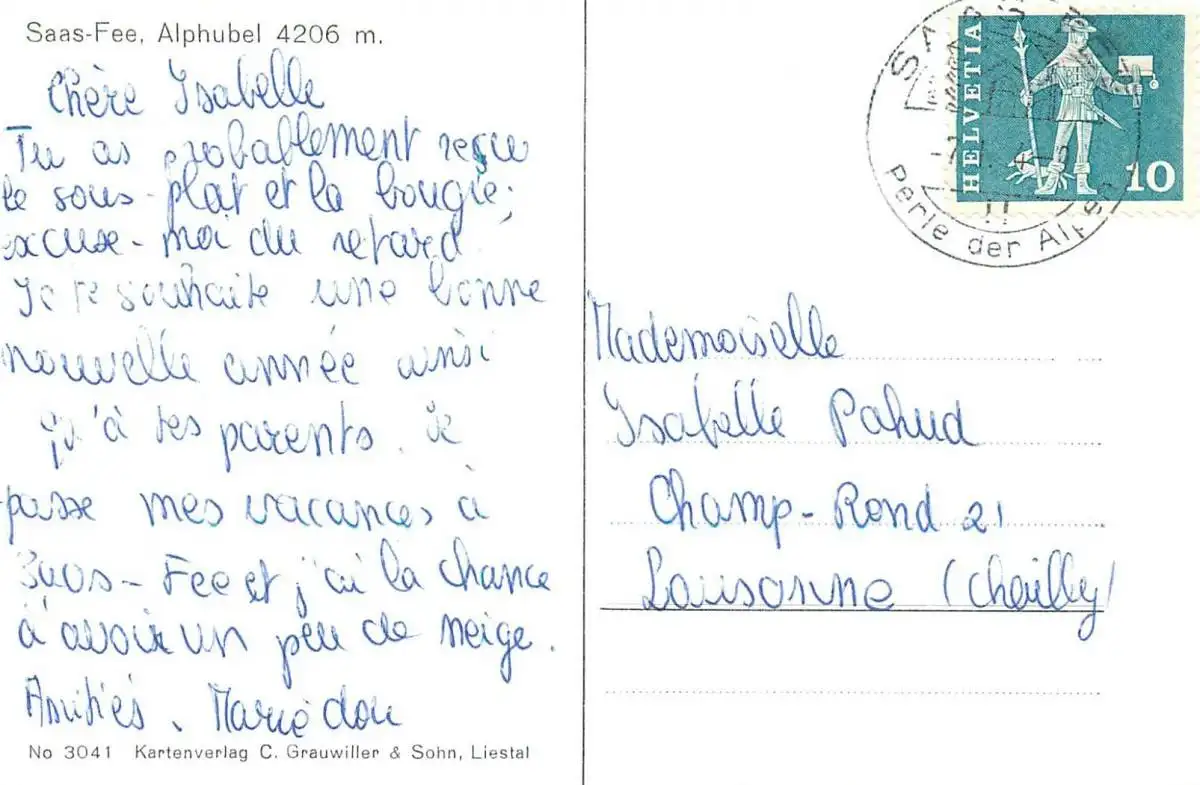 Saas-Fee, Alphubel 4206 m.
Chère Isabelle
Tu as probablement reçu
le sous-plat et la bougie;
excuse-moi du retard!
Je te souhaite une bonne
nouvelle année ainsi
qu'à tes parents. Je
passe mes vacances à
Saas-Fee et j'ai la chance
d'avoir un peu de neige.
Amitiés.
No 3041 Kartenverlag C. Grauwiller & Sohn, Liestal
HELVETIA
10
Perle der Alpen
Mademoiselle
Isabelle Pahud
Champ-Rond 21
Lausanne (Chailly)